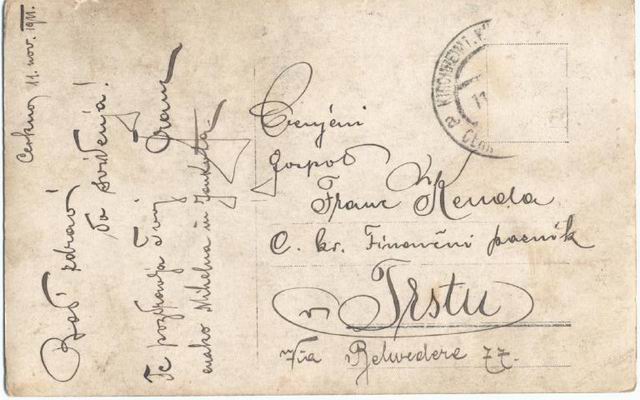 Cerkno, 11. nov. 1911.
Bodi zdrav!
Do svidenja!
Te pozdravlja Tvoj Franc
enako Mihelna in Jankota.
Cenjeni
gospod
Franc Kenda
C. kr. Finančni paznik
v Trstu
Via Belvedere 77.
KIRCHHEIM I. K
11